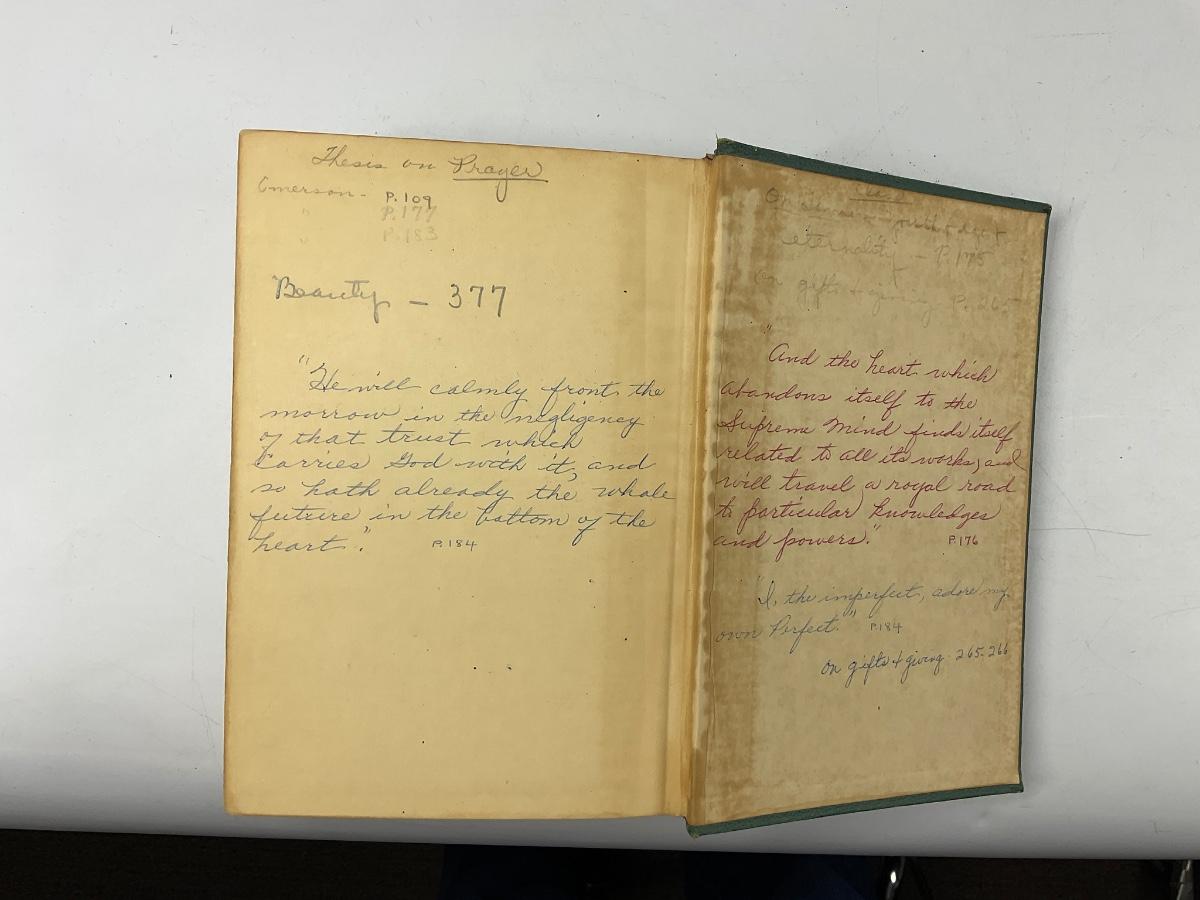 Thesis on Prayer
Emerson - P.109
" P.177
" P.183
Beauty - 377
"He will calmly front the
morrow in the negligency
of that trust which
Carries God with it, and
so hath already the whole
future in the bottom of the
heart." P.184
On
eternality" - P.175
On gifts & giving P. 265
"And the heart which
abandons itself to the
Supreme Mind finds itself
related to all its works, and
will travel a royal road
to particular knowledges
and powers." P.176
"I, the imperfect, adore my
own Perfect." P.184
on gifts & giving - 265-266